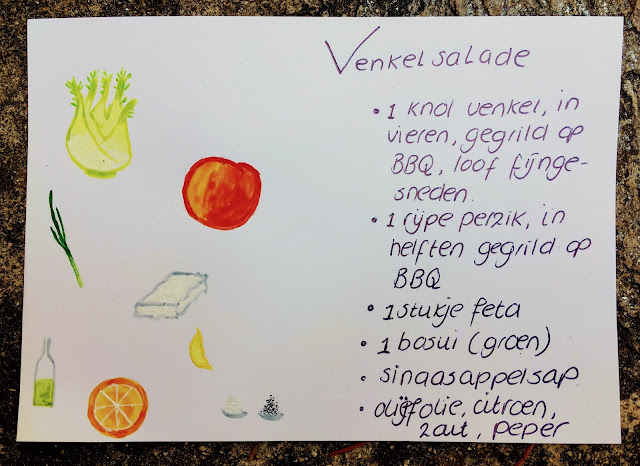 Venkelsalade
• 1 knol venkel, in
vieren, gegrild op
BBQ, loof fijnge-
sneden.
• 1 rijpe perzik, in
helften gegrild op
BBQ
• 1 stukje feta
• 1 bosui (groen)
• sinaasappelsap
• olijfolie, citroen,
zout, peper